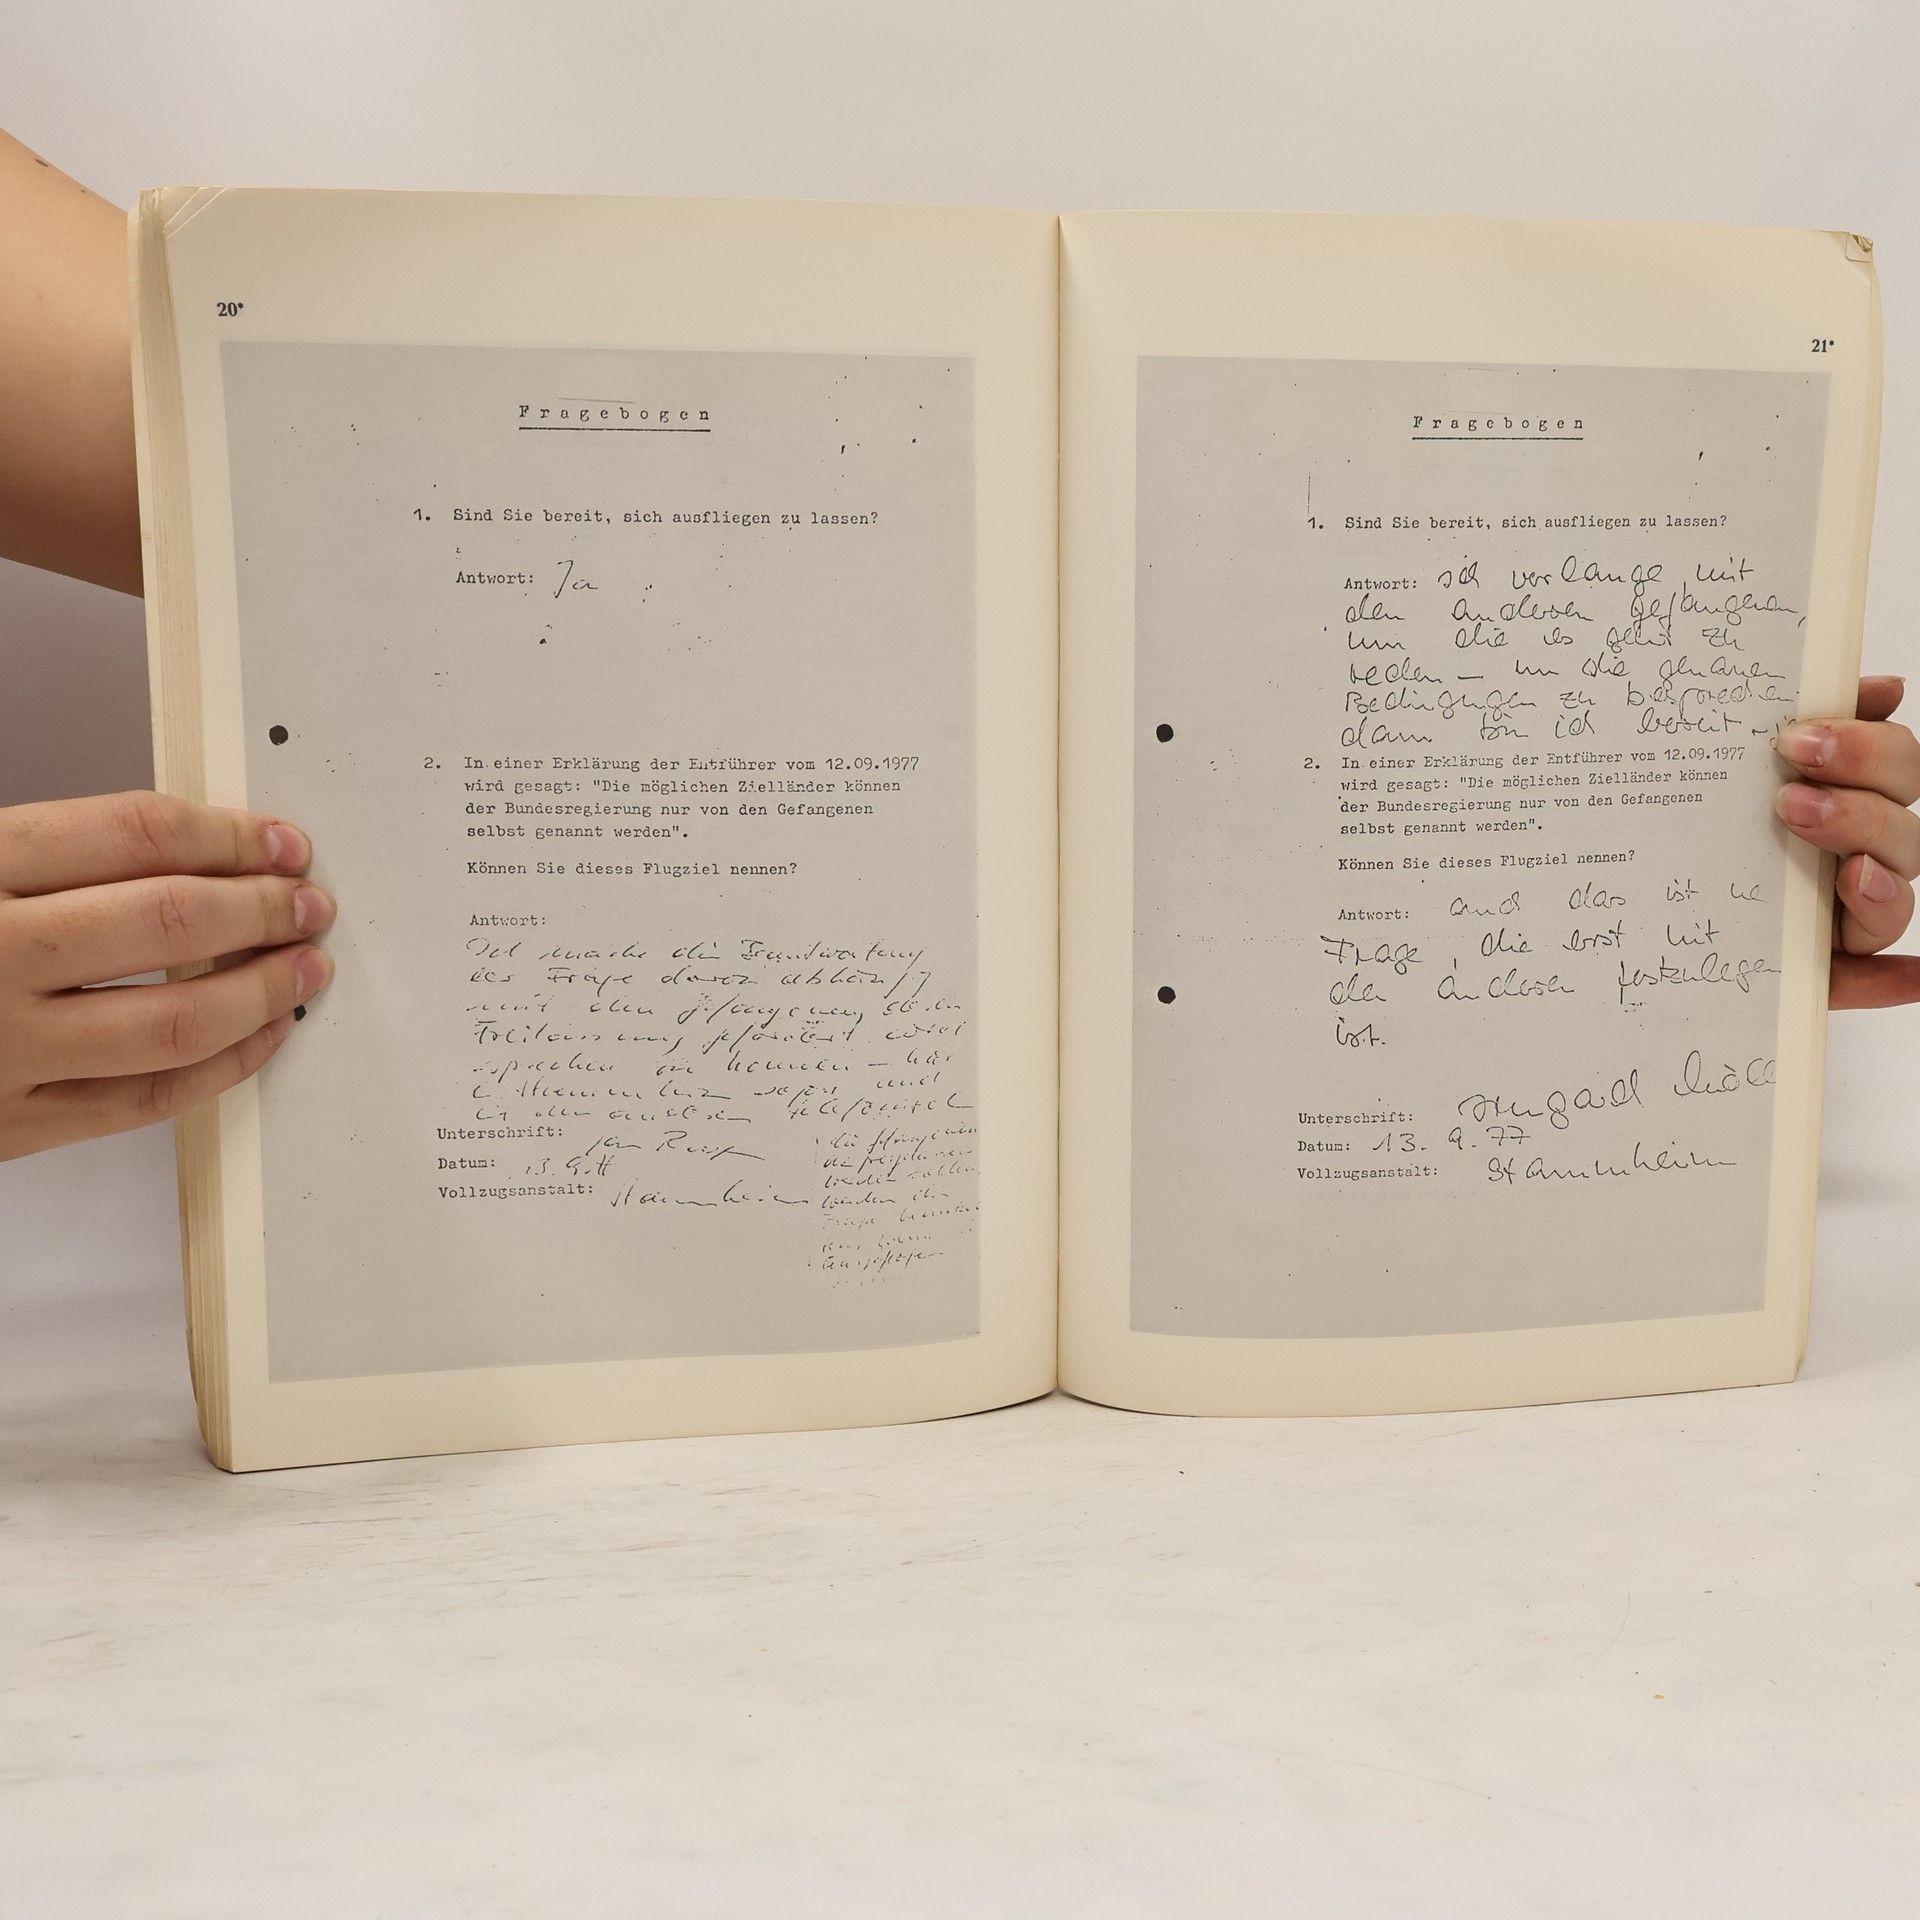 20*
Fragebogen
1. Sind Sie bereit, sich ausfliegen zu lassen?
Antwort: Ja
2. In einer Erklärung der Entführer vom 12.09.1977
wird gesagt: "Die möglichen Zielländer können
der Bundesregierung nur von den Gefangenen
selbst genannt werden".
Können Sie dieses Flugziel nennen?
Antwort:
Ich mache die Beantwortung
der Frage davon abhängig
mit den gefangenen, deren
Freilassung gefordert wird
sprechen zu können – hier
und
in den anderen telefonisch
Unterschrift: Jan
Datum: 13.9.77
Vollzugsanstalt: Stammheim
die gefangenen
die
werden
Frage
ausgeflogen
21*
Fragebogen
1. Sind Sie bereit, sich ausfliegen zu lassen?
Antwort: ich verlange, mit
den anderen gefangenen,
um die es geht zu
reden – um die genauen
Bedingungen zu besprechen
dann bin ich bereit –
2. In einer Erklärung der Entführer vom 12.09.1977
wird gesagt: "Die möglichen Zielländer können
der Bundesregierung nur von den Gefangenen
selbst genannt werden".
Können Sie dieses Flugziel nennen?
Antwort: auch das ist ne
Frage, die erst mit
den anderen festzulegen
ist.
Unterschrift: Irmgard Möll
Datum: 13. 9. 77
Vollzugsanstalt: Stammheim